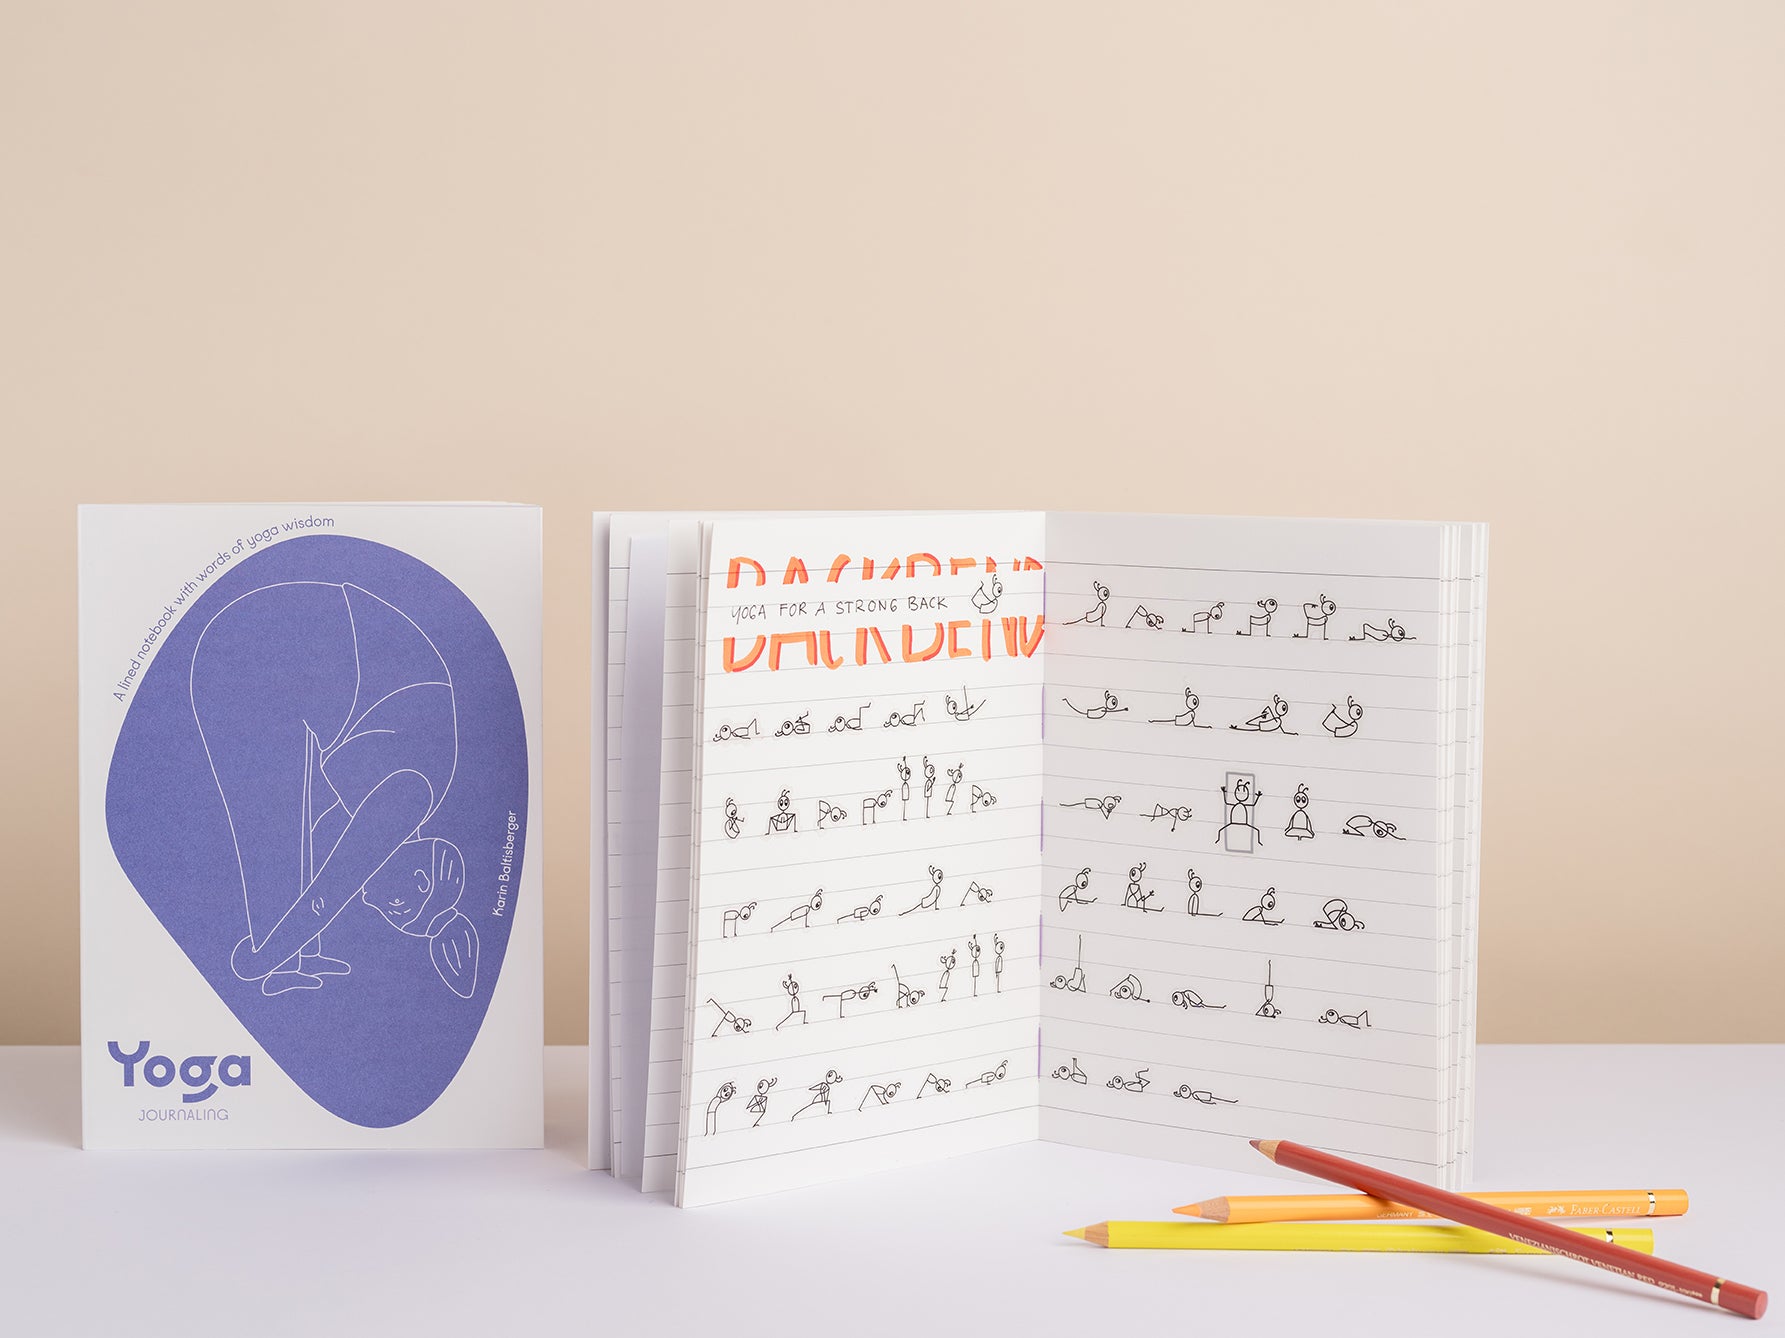 A lined notebook with words of yoga wisdom
Karin Baltisberger
Yoga
JOURNALING
BACKBEND
YOGA FOR A STRONG BACK
FABER-CASTELL
GERMANY
VENEZIANISCHROT VENETIAN RED